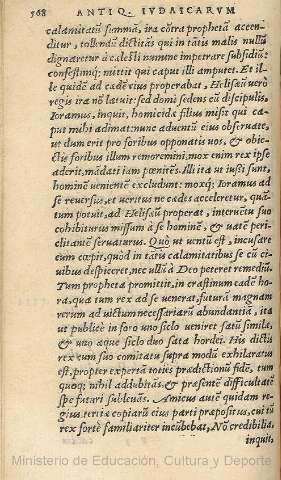 568 ANTIQ. IVDAICARVM
calamitatū summã, ira cõtra prophetã accen-
ditur, tollendū dictitãs qui in tãtis malis nullū
dignaretur à cælesti numine impetrare subsidiū:
confestimq́; mittit qui caput illi amputet. Et il-
le quidẽ ad cædẽ eius properabat, Helisæū verò
regis ira nõ latuit: sed domi sedens cū discipulis,
Ioramus, inquit, homicidæ filius misit qui ca-
put mihi adimat: nunc aduentū eius obseruate,
ut dum erit pro foribus opponatis uos, & obie-
ctis foribus illum remoremini, mox enim rex ipse
aderit, mādati iam pœnitẽs. Illi ita ut iussi sunt,
hominẽ venientẽ excludunt: moxq́; Ioramus ad
se reuersus, et ueritus ne cædes acceleretur, quã-
tum potuit, ad Helisæū properat, interuētu suo
cohibiturus missum à se hominē, & uatẽ peri-
clitantẽ seruaturus. Quò ut ventū est, incusare
eum cœpit, quòd in tãtis calamitatibus se cū ci-
uibus despiceret, nec ullū à Deo peteret remediū.
Tum propheta promittit, in crastinum eadẽ ho-
ra, qua tum rex ad se venerat, futurã magnam
rerum ad uictum necessariarū abundantiã, ita
ut publicè in foro uno siclo veniret satū similæ,
& uno æque siclo duo sata hordei. His dictis
rex cum suo comitatu supra modū exhilaratus
est, propter expertã toties prædictionū fidẽ, tum
quoq; nihil addubitãs, & præsentẽ difficultatẽ
spe futuri subleuãs. Amicus autē quidam re-
gius, tertiæ copiarū eius parti præpositus, cui tū
rex fortè familiariter incūbebat, Nõ credibilia,
inquit,
Ministerio de Educación, Cultura y Deporte